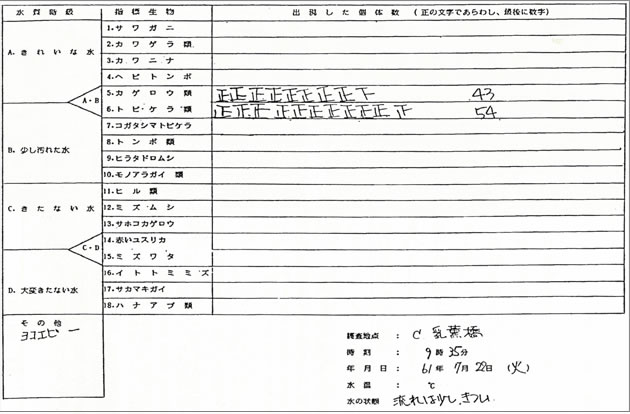 水質階級 指標生物 出現した個体数 (正の文字であらわし、最後に数字)
A. きれいな水
1. サワガニ
2. カワゲラ類
3. カワニナ
4. ヘビトンボ
A・B
5. カゲロウ類 正正正正正正正正下 43
6. トビケラ類 正正正正正正正正正正 54
B. 少し汚れた水
7. コガタシマトビケラ
8. トンボ類
9. ヒラタドロムシ
10. モノアラガイ類
C. きたない水
11. ヒル類
12. ミズムシ
13. サホコカゲロウ
C・D
14. 赤いユスリカ
15. ミズワタ
D. 大変きたない水
16. イトトミミズ
17. サカマキガイ
18. ハナアブ類
その他
ヨコエビ ー
調査地点 : C 乳業橋
時刻 : 9時35分
年月日 : 61年7月22日 (火)
水温 : ℃
水の状態 流れは少しきつい